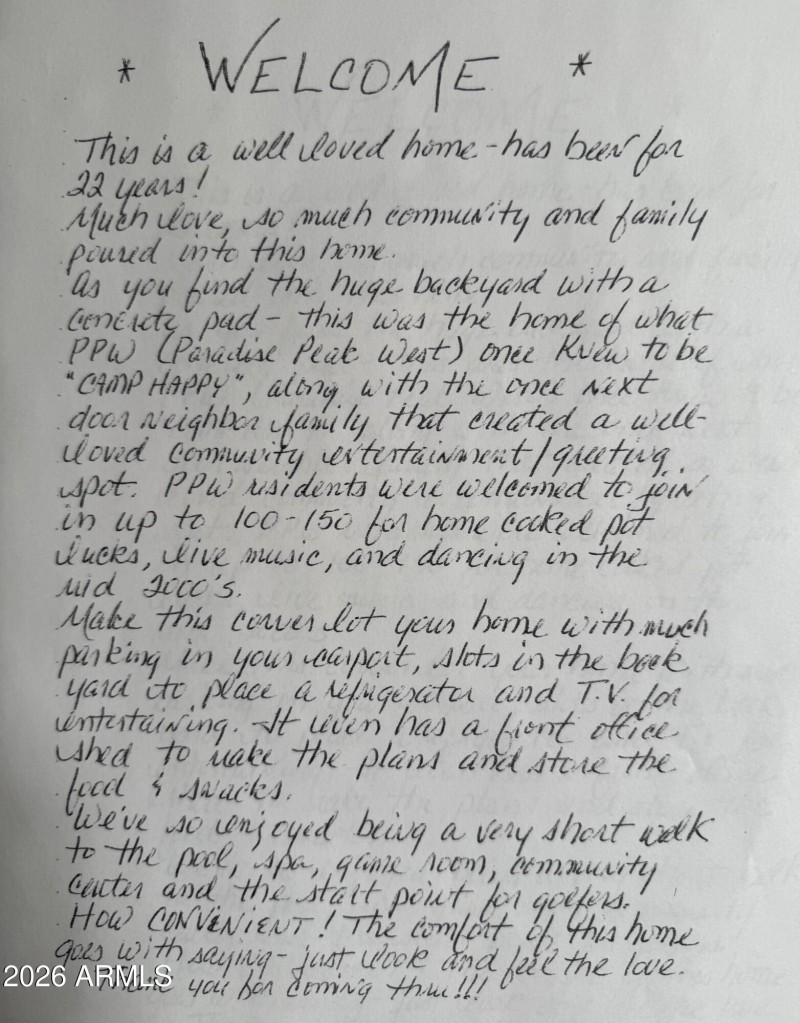 * WELCOME *
This is a well loved home - has been for
22 years!
Much love, so much community and family
poured into this home.
As you find the huge backyard with a
concrete pad - this was the home of what
PPW (Paradise Peak West) once knew to be
"CAMP HAPPY", along with the once next
door neighbor family that created a well-
loved community entertainment/greeting
spot. PPW residents were welcomed to join
in up to 100-150 for home cooked pot
lucks, live music, and dancing in the
mid 2000's.
Make this corner lot your home with much
parking in your carport, slots in the back
yard to place a refrigerator and T.V. for
entertaining. It even has a front office
shed to make the plans and store the
food & snacks.
We've so enjoyed being a very short walk
to the pool, spa, game room, community
center and the start point for golfers.
HOW CONVENIENT! The comfort of this home
goes with saying - just look and feel the love.
Thank you for coming thru!!!
2026 ARMLS